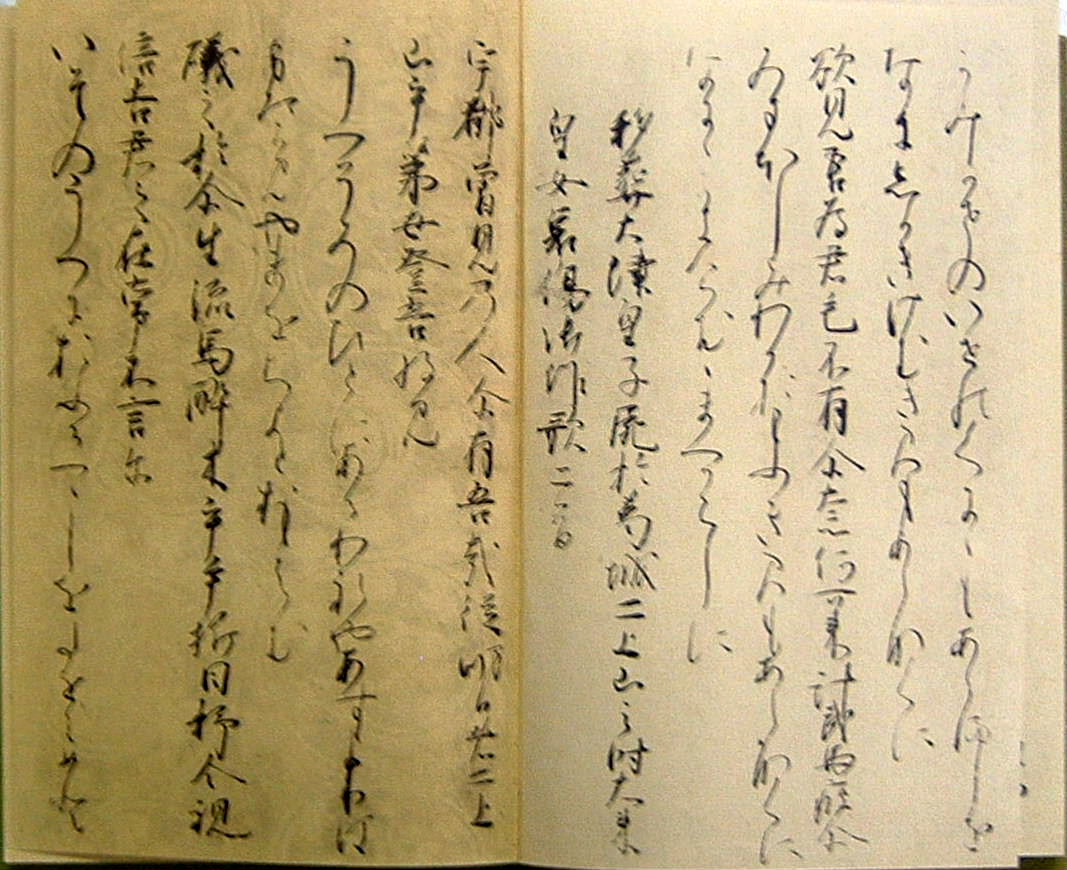 かせのいせのくにゝもあらましを
なにしかきけむきみもあらなくに
欲見吾為君毛不有尓奈何可来計武馬疲尓
みまほしみわかおもふきみもあらなくに
なにゝきたらむゝまつからしに
移葬大津皇子屍於葛城二上山之時大来
皇女哀傷御作歌二首
宇都曽見乃人尓有吾哉従明日者二上
山乎弟世登吾将見
うつそみのひとにあるわれやあすよりは
かみやまを
磯之於尓生流馬酔木乎手折目杼令視
倍吉君之在常不言尓
いそのうへにおふるつゝしをたをらめと